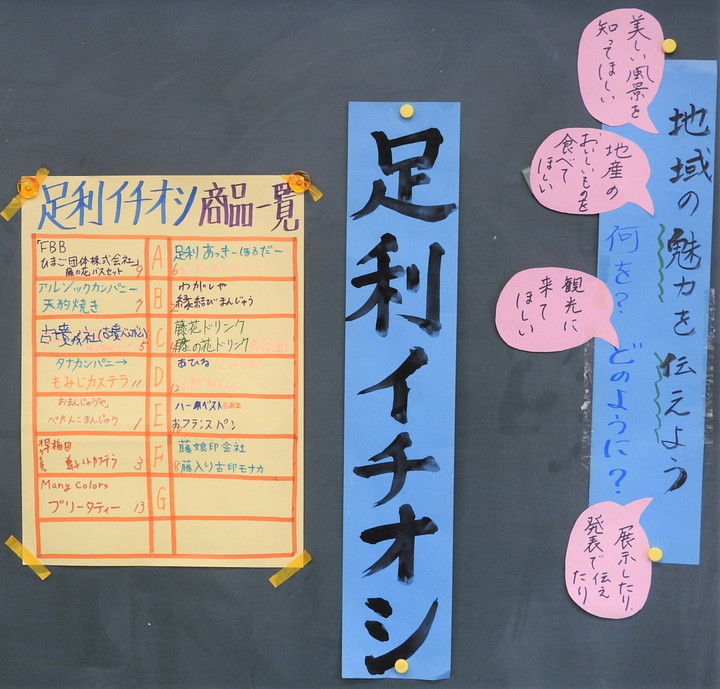 足利イチオシ商品一覧
「FBB
ひまご団体株式会社」
藤の花バスセット 9
A
足利 あっきーほるだー
6
アルシックカンパニー
天狗焼き 7
B
わがしや
縁結びまんじゅう
2
5
C
藤花ドリンク
藤の花ドリンク
4
タナカンパニー→
もみじカステラ 11
D
おひね
12
おまんじゅうや
ぺたんこまんじゅう 1
E
おフランスパン
3
F
藤娘印会社
8 藤入り古印モナカ
Many Colors
ブリータティー 13
G
足利イチオシ
地域の魅力を伝えよう
何を? どのように?
美しい風景を
知ってほしい
地産の
おいしいものを
食べて
ほしい
観光に
来て
ほしい
展示したり、
発表で伝え
たり